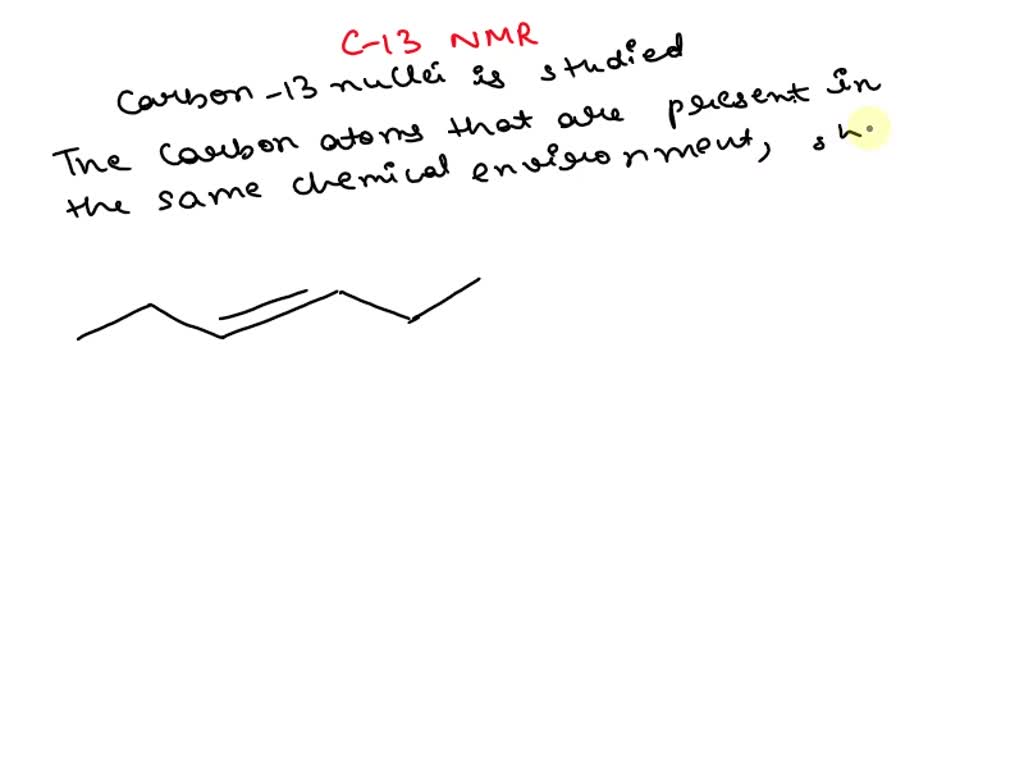 C-13 NMR
Carbon-13 nuclei is studied
The carbon atoms that are present in
the same chemical environment, sh